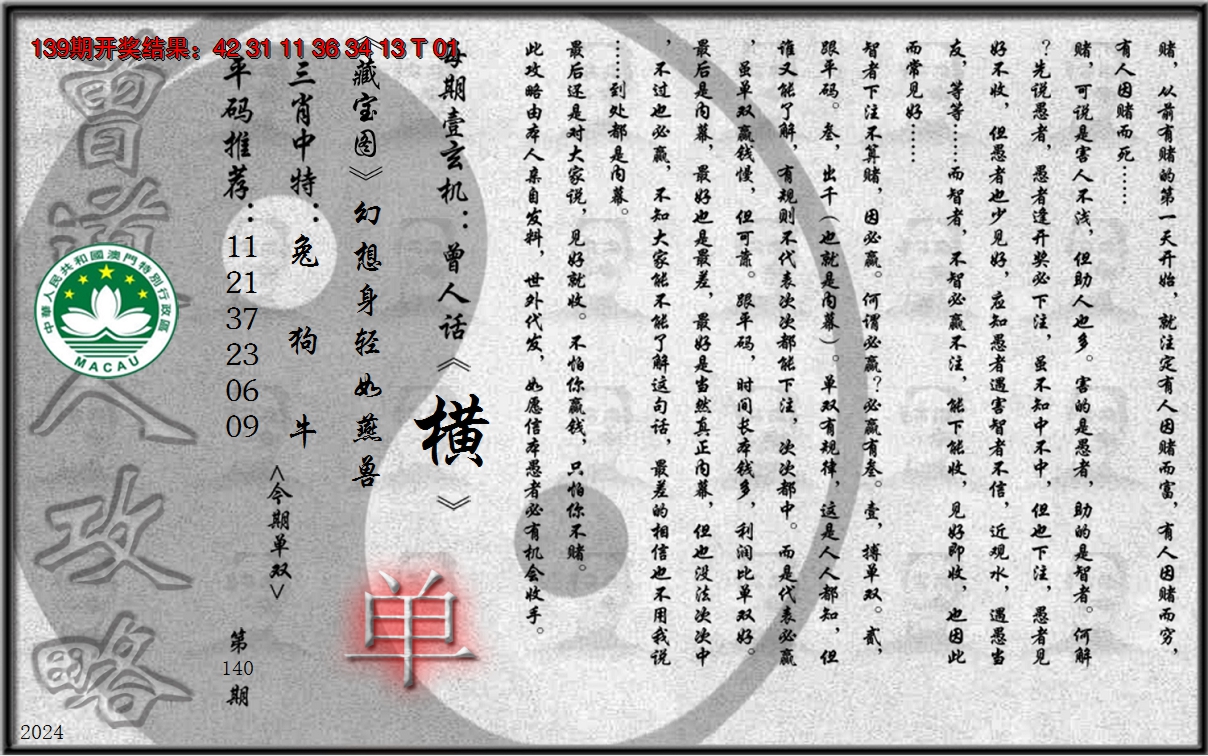 139期开奖结果：42 31 11 36 34 13 T 01
赌，从前有赌的第一天开始，就注定有人因赌而富，有人因赌而穷，
有人因赌而死……
赌，可说是害人不浅，但助人也多。害的是愚者，助的是智者。何解
？先说愚者，愚者逢开奖必下注，虽不知中不中，但也下注，愚者见
好不收，但愚者也少见好，应知愚者遇害智者不信，近观水，遇愚当
友，等等……而智者，不智必赢不注，能下能收，见好即收，也因此
而常见好……
智者下注不算赌，因必赢。何谓必赢？必赢有叁。壹，搏单双。贰，
跟平码。叁，出千（也就是内幕）。单双有规律，这是人人都知，但
谁又能了解，有规则不代表次次都能下注，次次都中。而是代表必赢
，虽单双赢钱慢，但可靠。跟平码，时间长本钱多，利润比单双好。
最后是内幕，最好也是最差，最好是当然真正内幕，但也没法次次中
，不过也必赢，不知大家能不能了解这句话，最差的相信也不用我说
……到处都是内幕。
最后还是对大家说，见好就收。不怕你赢钱，只怕你不赌。
此攻略由本人亲自发料，世外代发，如愿信本愚者必有机会收手。
每期壹玄机：曾人话《横》
《藏宝图》幻想身轻如燕兽
单
三肖中特：兔 狗 牛
<今期单双>
平码推荐：11 21 37 23 06 09
第140期
曾道人攻略
中華人民共和國澳門特別行政區
MACAU
2024